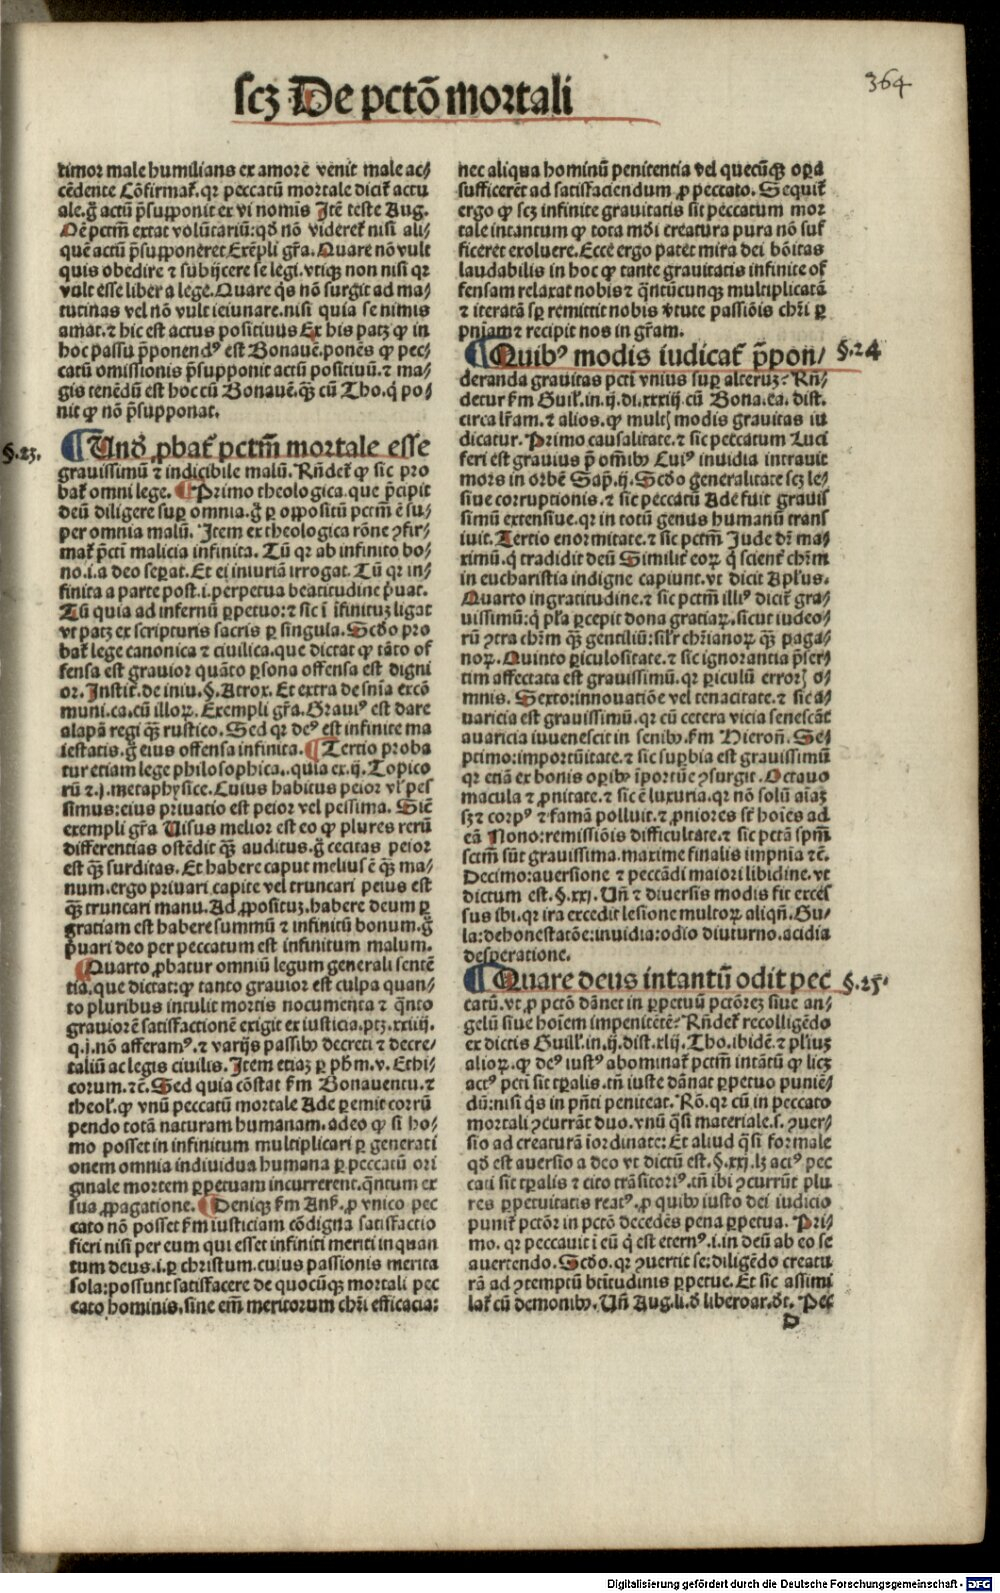 scꝫ De pctō mortali
364
timor male humilians ex amore venit male ac⸗
cēdente Cōfirmat̄. qr peccatū mortale dicit̄ actu
ale. ḡ actū p̄supponit ex vi nomīs Itē teste Aug.
Oē pctm̄ extat volūtariū: qḋ nō videret̄ nisi ali⸗
quē actū p̄supponeret Exēpli gr̄a. Quare nō vult
quis obedire ⁊ subijcere se legi. vtiqꝫ non nisi qr
vult esse liber a lege. Quare q̄s nō surgit ad ma⸗
tutinas vel nō vult ieiunare. nisi quia se nimis
amat. ⁊ hic est actus positiuus Ex his patꝫ ꝙ in
hoc passu p̄ponendꝰ est Bonauē. ponēs ꝙ pec⸗
catū omissionis p̄supponit actū positiuū. ⁊ ma⸗
gis tenēdū est hoc cū Bonauē. qꝫ̄ cū Tho. q̇ po⸗
nit ꝙ nō p̄supponat.
§.23.
¶ Unḋ ꝓbat̄ pctm̄ mortale esse
grauissimū ⁊ indicibile malū. Rn̄det̄ ꝙ sic pro
bat̄ omni lege. ¶ Primo theologica. que p̄cipit
deū diligere suꝑ omnia. ḡ ꝑ oppositū pctm̄ ē su⸗
per omnia malū. Item ex theologica rōne ꝯfir⸗
mat̄ pc̄ti malicia infinita. Tū qr ab infinito bo⸗
no .i. a deo seꝑat. Et ei iniuriā irrogat. Tū qr in⸗
finita a parte post .i. perpetua beatitudine p̄uat.
Tū quia ad infernū ꝑpetuo: ⁊ sic ī īfinituꝫ ligat
vt patꝫ ex scripturis sacris ꝑ singula. Scḋo pro
bat̄ lege canonica ⁊ ciuilica. que dictat ꝙ tāto of
fensa est grauior quāto ꝑsona offensa est digni
or. Instit̄. de iniu. §. Atrox. Et extra de sn̄ia excō
muni. ca. cū illoꝝ. Exempli gr̄a. Grauiꝰ est dare
alapā regi qꝫ̄ rustico. Sed qr deꝰ est infinite ma
iestatis. ḡ eius offensa infinita. ¶ Tertio proba
tur etiam lege philosophica. quia ex .ij. Topico
rū ⁊ .j. metaphysice. Cuius habitus peior vl̓ pes
simus: eius priuatio est peior vel pessima. Sicē
exempli gr̄a Uisus melior est eo ꝙ plures rerū
differentias ostēdit qꝫ̄ auditus. ḡ cecitas peior
est qꝫ̄ surditas. Et habere caput meliusˀ ē qꝫ̄ ma⸗
num. ergo priuari capite vel truncari peius est
qꝫ̄ truncari manu. Ad ꝓposituꝫ. habere deum ꝑ
gratiam est habere summū ⁊ infinitū bonum. ḡ
p̄uari deo per peccatum est infinitum malum.
¶ Quarto ꝓbatur omniū legum generali sentē
tia. que dictat: ꝙ tanto grauior est culpa quan⸗
to pluribus intulit mortis nocumenta ⁊ q̄nto
grauiorē satisfactionē exigit ex iusticia. ptꝫ. xxiiij.
q. j. nō afferamꝰ. ⁊ varijs passibꝰ decreti ⁊ decre⸗
taliū ac legis ciuilis. Item etiaꝫ ꝑ ph̄m. v. Ethi⸗
corum. ⁊c̄. Sed quia cōstat s̄m Bonauentu. ⁊
theol̓. ꝙ vnū peccatū mortale Ade ꝑemit corrū
pendo totā naturam humanam. adeo ꝙ si ho⸗
mo posset in infinitum multiplicari ꝑ generati
onem omnia indiuidua humana ꝑ peccatū ori
ginale mortem ꝑpetuam incurrerent. q̄ntum ex
sua ꝓpagatione. ¶ Deniqꝫ s̄m Ans̄. ꝓ vnico pec
cato nō posset s̄m iusticiam cōdigna satisfactio
fieri nisi per eum qui esset infiniti meriti inquan
tum deus .i. ꝑ christum. cuius passionis merita
sola: possunt satisfacere de quocūqꝫ mortali pec
cato hominis. sine em̄ meritorum chr̄i efficacia:
nec aliqua hominū penitentia vel quecūqꝫ oꝑa
sufficerēt ad satisfaciendum ꝓ peccato. Sequit̄
ergo ꝙ scꝫ infinite grauitatis sit peccatum mor
tale intantum ꝙ tota mūdi creatura pura nō suf
ficeret exoluere. Ecce ergo patet mira dei bōitas
laudabilis in hoc ꝙ tante grauitatis infinite of
fensam relaxat nobis ⁊ q̄ntūcunqꝫ multiplicatā
⁊ iteratā sꝑ remittit nobis v̓tute passiōis chr̄i ꝑ
pn̄iam ⁊ recipit nos in gr̄am.
¶ Quibꝰ modis iudicat̄ p̄pon⸗
§.24
deranda grauitas pcti vnius suꝑ alteruꝫ? Rn̄⸗
detur s̄m Guil̓. in .ij. di. xxxiij. cū Bona. ea. dist.
circa lr̄am. ⁊ alios. ꝙ multꝭ modis grauitas iu
dicatur. Primo causalitate. ⁊ sic peccatum Luci
feri est grauius p̄ omībꝰ Cuiꝰ inuidia intrauit
mors in orbē Sap̄. ij. Scḋo generalitate scꝫ le⸗
siue corruptionis. ⁊ sic peccatū Ade fuit grauis
simū extensiue. qr in totū genus humanū trans
iuit. Tertio enormitate. ⁊ sic pctm̄ Jude dr̄ ma⸗
ximū. q̇ tradidit deū Similit̓ eoꝝ q̇ scient̓ chr̄m
in eucharistia indigne capiunt. vt dicit Apl̓us.
Quarto ingratitudine. ⁊ sic pctm̄ illiꝰ dicit̄ gra⸗
uissimū: q̇ pl̓a ꝑcepit dona gratiaꝝ. sicut iudeo⸗
rū ꝯtra chr̄m qꝫ̄ gentiliū: sil̓r chr̄ianoꝝ qꝫ̄ paga⸗
noꝝ. Quinto ꝑiculositate. ⁊ sic ignorantia p̄ser⸗
tim affectata est grauissimū. qr ꝑiculū errorꝭ o⸗
mnis. Sexto: innouatiōe vel tenacitate. ⁊ sic a⸗
uaricia est grauissimū. qr cū cetera vicia senescāt
auaricia iuuenescit in senibꝰ. s̄m Hieron̄. Se⸗
ptimo: importūitate. ⁊ sic suꝑbia est grauissimū
qr etiā ex bonis oꝑibꝰ īportūe ꝯsurgit. Octauo
macula ⁊ ꝓnitate. ⁊ sic ē luxuria. qr nō solū aīaꝫ
sꝫ ⁊ corpꝰ ⁊ famā polluit. ⁊ ꝓniores st̄ hoīes ad
eā Nono: remissiōis difficultate. ⁊ sic pctā spm̄
sctm̄ sūt grauissima. maxime finalis impn̄ia ⁊c̄.
Decimo: auersione ⁊ peccādi maiori libidine. vt
dictum est. §. xxj. Un̄ ⁊ diuersis modis fit exces
sus ibi. qr ira excedit lesione multoꝝ aliqn̄. Gu⸗
la: dehonestatōe: inuidia: odio diuturno. acidia
desperatione.
¶ Quare deus intantū odit pec
§.25.
catū. vt ꝓ pctō dānet in ꝑpetuū pctōreꝫ siue an⸗
gelū siue hoīem impenitētē? Rn̄det̄ recolligēdo
ex dictis Guil̓l. in .ij. dist. xlij. Tho. ibidē. ⁊ pl̓ius
alioꝝ. ꝙ deꝰ iustꝰ abominat̄ pctm̄ intātū ꝙ licꝫ
actꝰ pcti sit tꝑalis. tn̄ iuste dānat ꝑpetuo puniē⸗
dū: nisi q̄s in pn̄ti peniteat. Rō. qr cū in peccato
mortali ꝯcurrāt duo. vnū q̄si materiale .s. ꝯuer⸗
sio ad creaturā īordinate: Et aliud q̄si formale
qḋ est auersio a deo vt dictū est. §. xxj. lꝫ actꝰ pec
cati sit tꝑalis ⁊ cito trāsitoriꝰ. tn̄ ibi ꝯcurrūt plu
res ꝑpetuitatis reatꝰ. ꝓ quibꝰ iusto dei iudicio
punit̄ pctōr in pctō decedēs pena ꝑpetua. Pri⸗
mo. qr peccauit ī eū q̇ est eternꝰ .i. in deū ab eo se
auertendo. Scḋo. qr ꝯuertit se: diligēdo creatu
rā ad ꝯtemptū btītudinis ꝑpetue. Et sic assimi
lat̄ cū demonibꝰ. Un̄ Aug. li. ḋ libero ar. ḋt. Pec
D
Digitalisierung gefördert durch die Deutsche Forschungsgemeinschaft - DFG